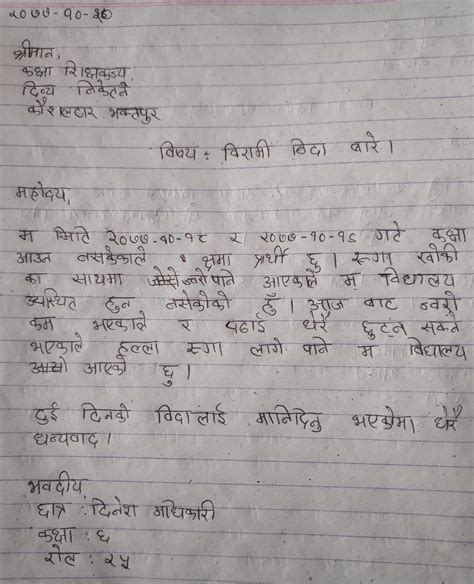 २०७७-१०-२०
श्रीमान,
कक्षा शिक्षकज्यू,
दिव्य निकेतन
कौशलटार भक्तपुर
विषय : विरामी विदा बारे ।
महोदय,
म मिति २०७७-१०-१८ र २०७७-१०-१९ गते कक्षा
आउन नसकेकाले क्षमा प्रार्थी छु । रुगा खोकी
का साथमा ज्वरो पनि आएकाले म विद्यालय
उपस्थित हुन नसकेको हुँ । आज बाट ज्वरो
कम भएकाले र पढाई धेरै छुट्न सक्ने
भएकाले हल्का रुगा लागे पनि म विद्यालय
आएको छु ।
दुई दिनको विदा लाई मानिदिनु भएकोमा धेरै
धन्यवाद ।
भवदीय
छात्र : दिनेश अधिकारी
कक्षा : ६
रोल : २५